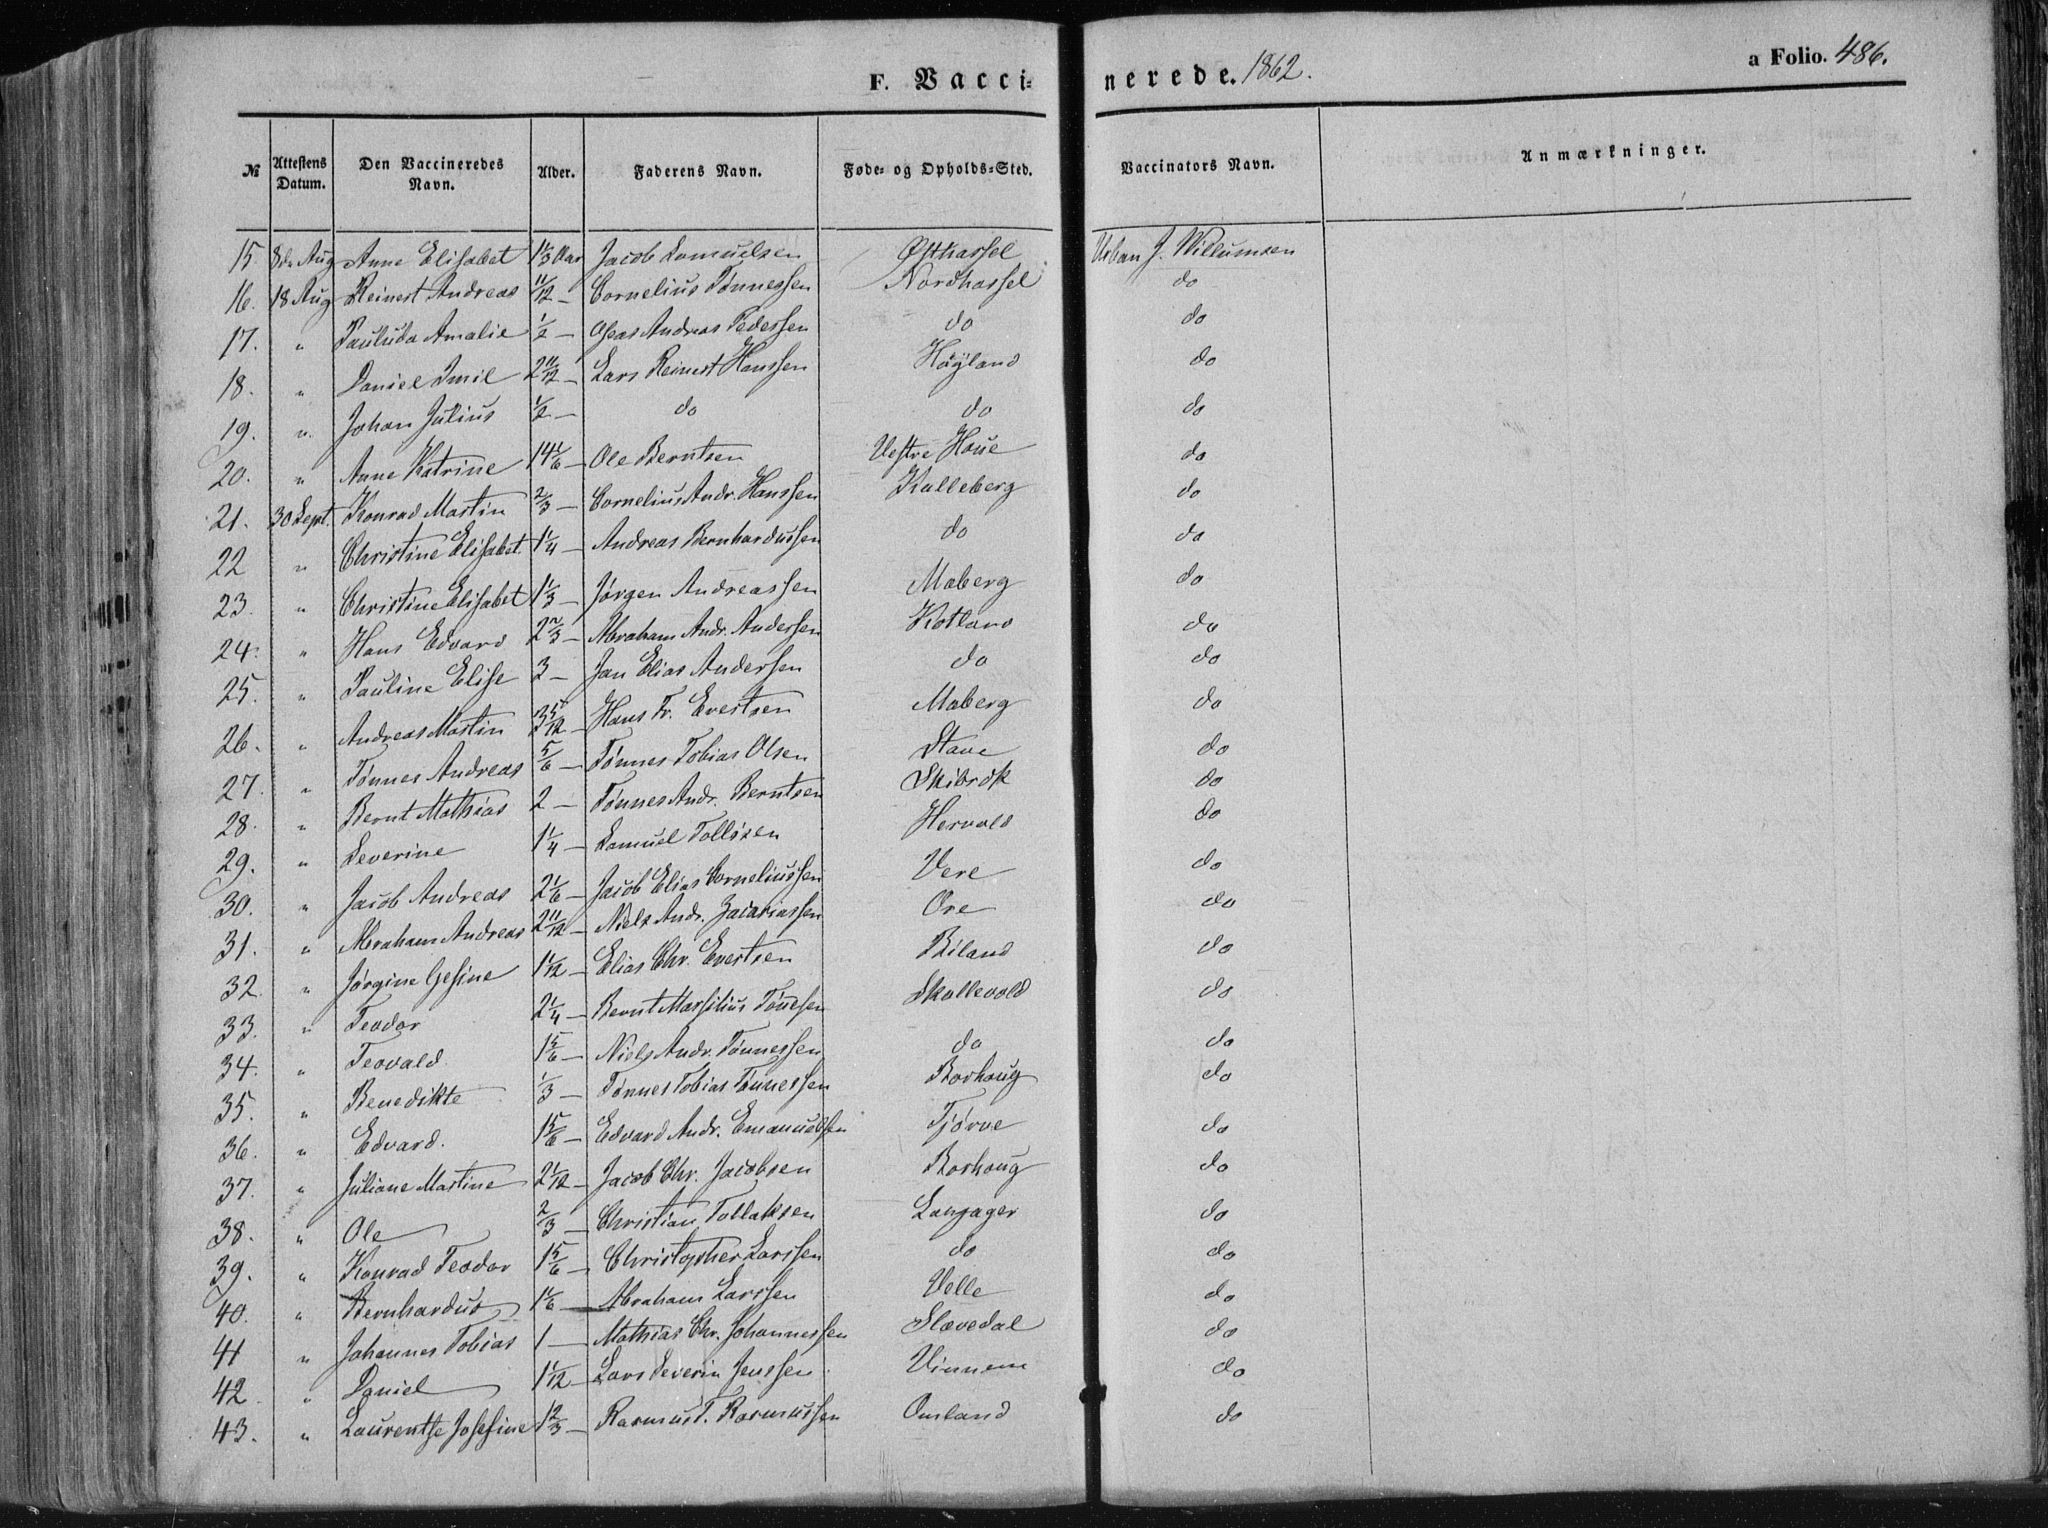 F. Vacci- nerede. 1862. a Folio. 486.
№ Attestens Datum. Den Vaccineredes Navn. Alder. Faderens Navn. Føde- og Opholds-Sted. Vaccinators Navn. Anmærkninger.
15 8de Aug Anne Elisabet 1 1/3 Aar Jacob Samuelsen Østhassel Urban J. Willumsen
16. 18 Aug Reinert Andreas 11/12 — Cornelius Tønnessen Nordhassel do
17. " Pauluda Amalie 1/2 — Oseas Andreas Pedersen do do
18. " Daniel Emil 2 11/12 — Lars Reinert Hanssen Høyland do
19. " Johan Julius 1/2 — do do do
20. " Anne Katrine 14 1/6 — Ole Berntsen Vestre Houe do
21. 30 Sept. Konrad Martin 2/3 — Cornelius Andr. Hanssen Kalleberg do
22 " Christine Elisabet 1 1/4 — Andreas Bernhardussen do do
23. " Christine Elisabet 1 1/3 — Jørgen Andreassen Maberg do
24. " Hans Edvard 2 2/3 — Abraham Andr. Andersen Kotland do
25. " Pauline Elise 3 — Jan Elias Andersen do do
26. " Andreas Martin 3 5/12 — Hans Fr. Evertsen Maberg do
27. " Tønnes Andreas 5/6 — Tønnes Tobias Olsen Stave do
28. " Bernt Mathias 2 — Tønnes Andr. Berntsen Skibrok do
29. " Severine 1 1/4 — Samuel Tollisen Hervold do
30. " Jacob Andreas 2 1/6 — Jacob Elias Corneliussen Vere do
31. " Abraham Andreas 2 11/12 — Niels Andr. Zacariassen Ore do
32. " Jørgine Gesine 1 1/12 — Elias Chr. Evertsen Biland do
33. " Teodor 2 1/4 — Bernt Marsilius Tønesen Skollevold do
34. " Teovald 1 5/6 — Niels Andr. Tønnessen do do
35. " Benedikte 1/3 — Tønnes Tobias Tønnessen Borhoug do
36. " Edvard. 1 5/6 — Edvard Andr. Emanuelsen Tjørve do
37. " Juliane Martine 2 1/12 — Jacob Chr. Jacobsen Borhoug do
38. " Ole 2/3 — Christian Tollaksen Langager do
39. " Konrad Teodor 1 5/6 — Christopher Larssen do do
40. " Bernhardus 1 1/6 — Abraham Larssen Velle do
41 " Johannes Tobias 1 — Mathias Chr. Johannessen Slævedal do
42. " Daniel 1 1/12 — Lars Severin Jenssen Vinnem do
43. " Laurentse Josefine 1 2/3 — Rasmus T. Rasmussen Omland do